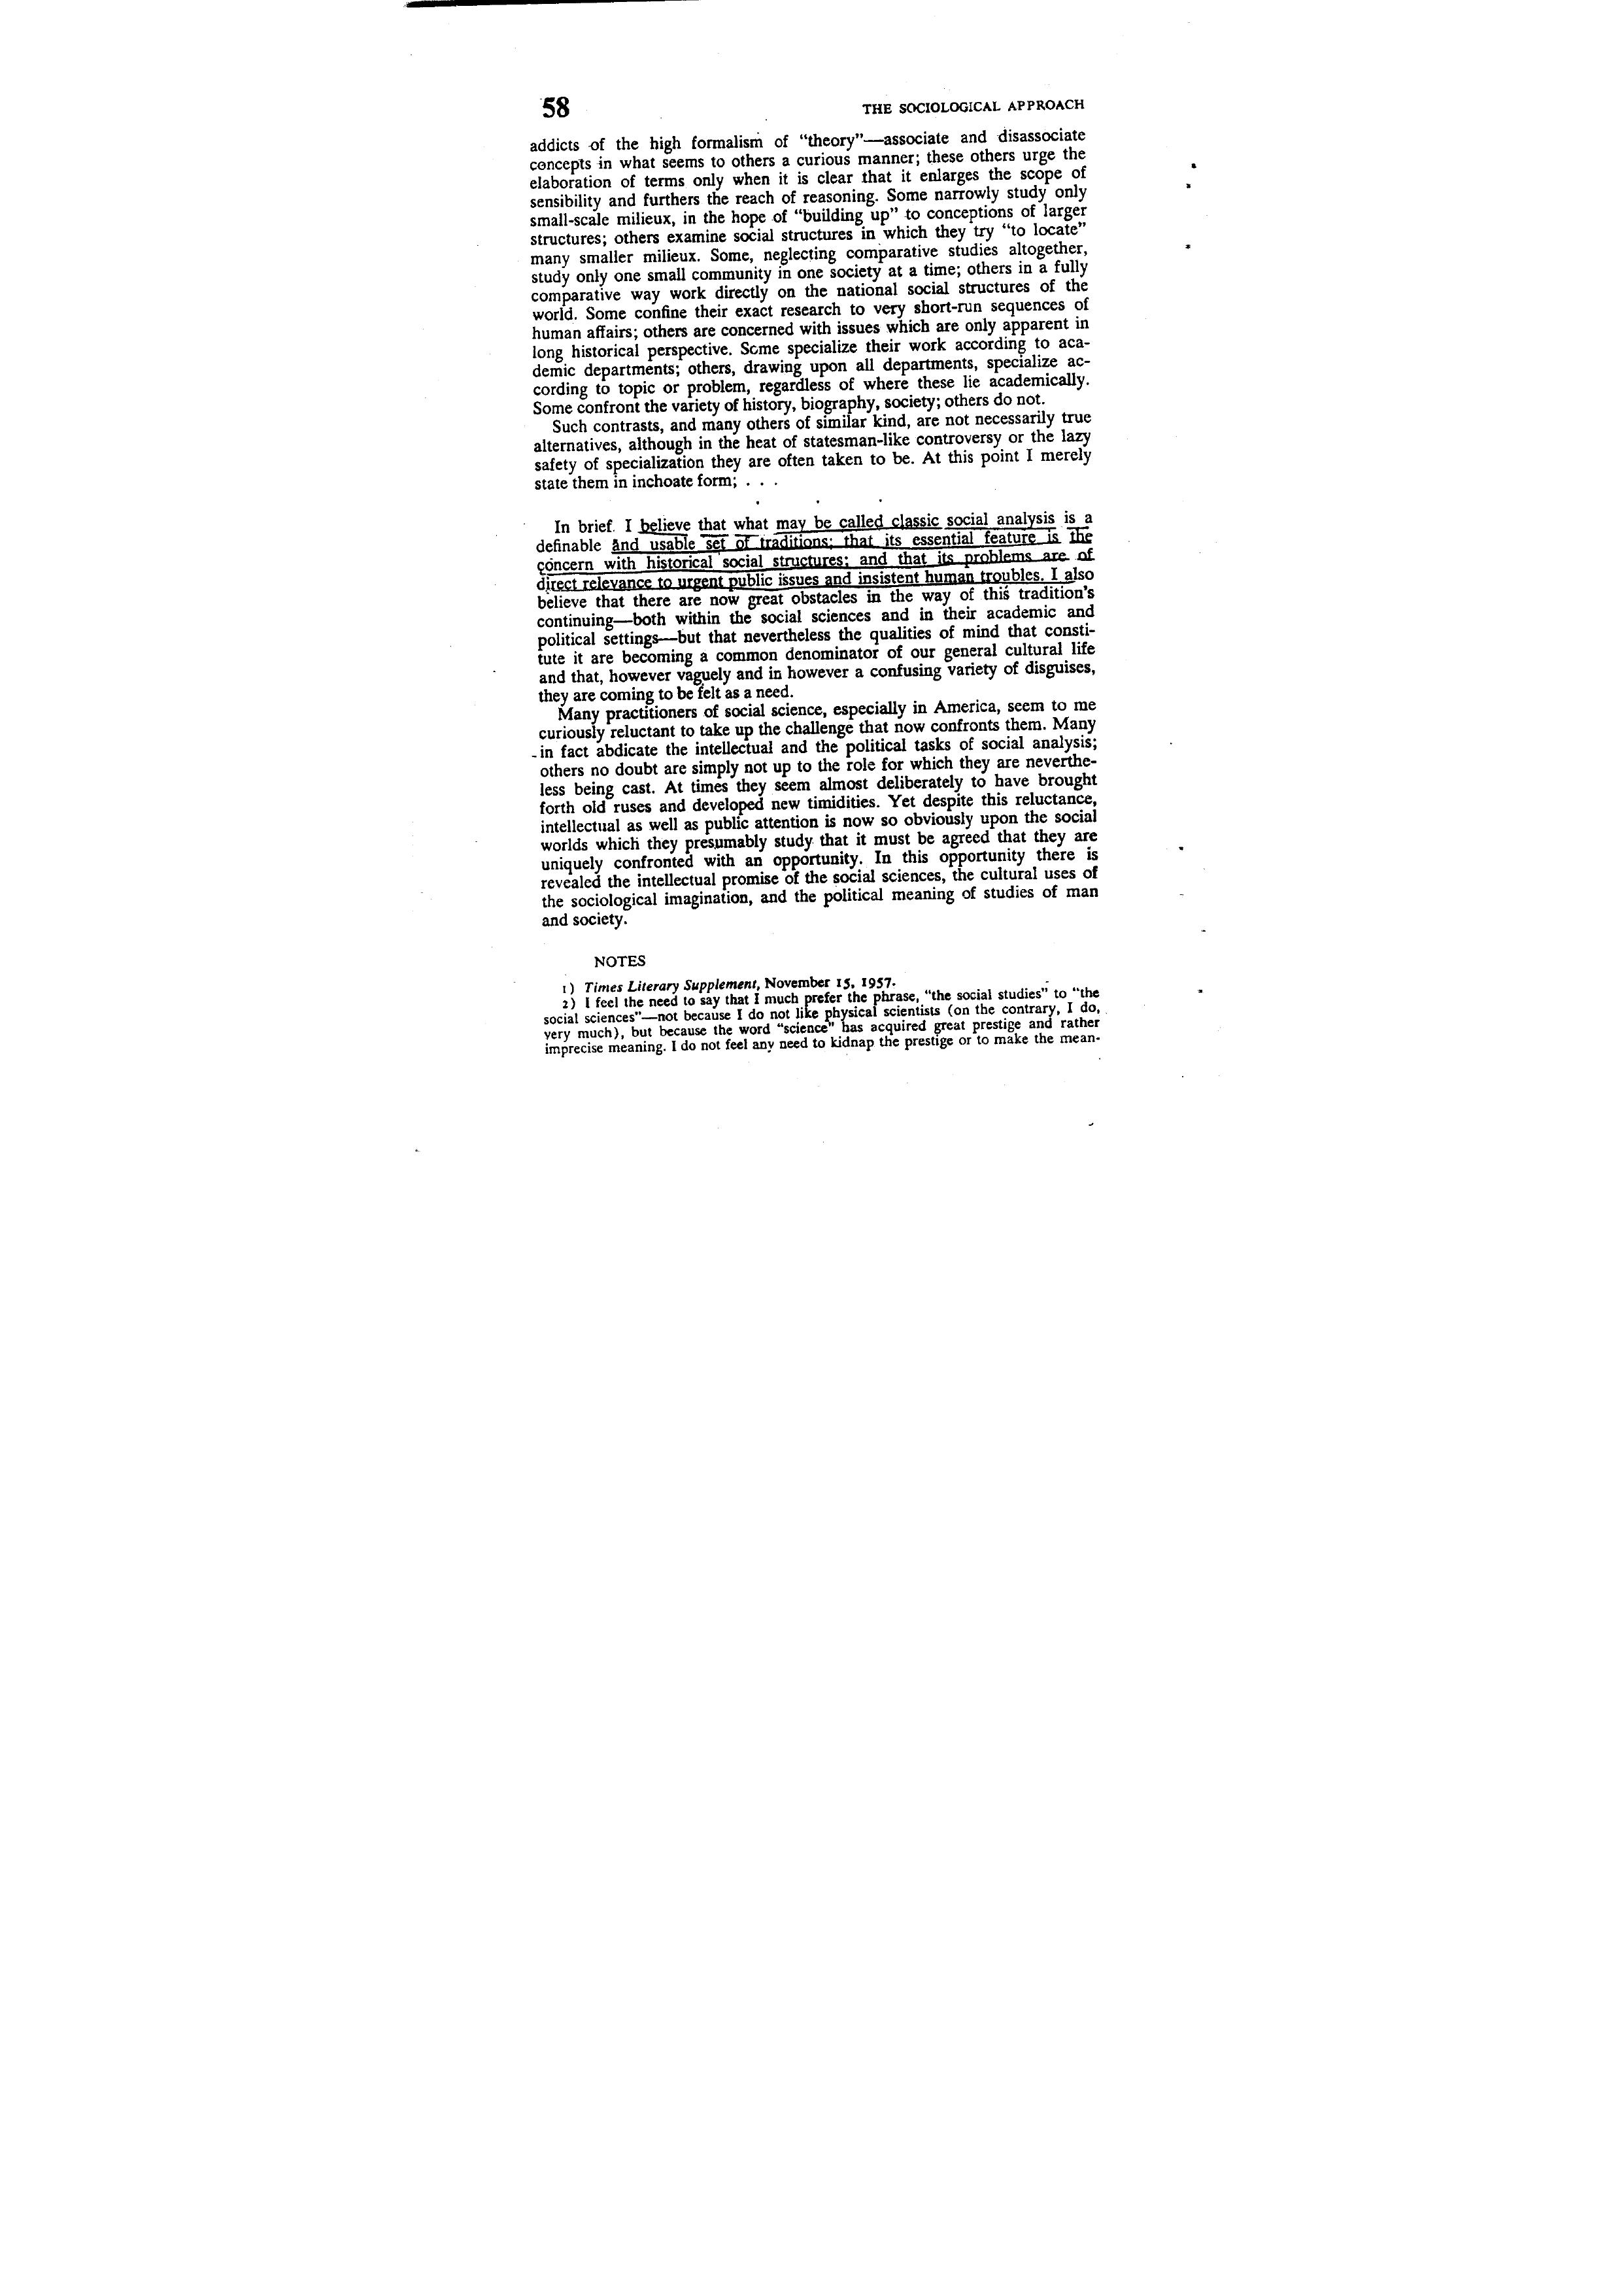 58
THE SOCIOLOGICAL APPROACH
addicts of the high formalism of “theory”—associate and disassociate
concepts in what seems to others a curious manner; these others urge the
elaboration of terms only when it is clear that it enlarges the scope of
sensibility and furthers the reach of reasoning. Some narrowly study only
small-scale milieux, in the hope of “building up” to conceptions of larger
structures; others examine social structures in which they try “to locate”
many smaller milieux. Some, neglecting comparative studies altogether,
study only one small community in one society at a time; others in a fully
comparative way work directly on the national social structures of the
world. Some confine their exact research to very short-run sequences of
human affairs; others are concerned with issues which are only apparent in
long historical perspective. Some specialize their work according to aca-
demic departments; others, drawing upon all departments, specialize ac-
cording to topic or problem, regardless of where these lie academically.
Some confront the variety of history, biography, society; others do not.
Such contrasts, and many others of similar kind, are not necessarily true
alternatives, although in the heat of statesman-like controversy or the lazy
safety of specialization they are often taken to be. At this point I merely
state them in inchoate form; . . .
In brief. I believe that what may be called classic social analysis is a
definable and usable set of traditions; that its essential feature is the
concern with historical social structures; and that its problems are of
direct relevance to urgent public issues and insistent human troubles. I also
believe that there are now great obstacles in the way of this tradition's
continuing—both within the social sciences and in their academic and
political settings—but that nevertheless the qualities of mind that consti-
tute it are becoming a common denominator of our general cultural life
and that, however vaguely and in however a confusing variety of disguises,
they are coming to be felt as a need.
Many practitioners of social science, especially in America, seem to me
curiously reluctant to take up the challenge that now confronts them. Many
in fact abdicate the intellectual and the political tasks of social analysis;
others no doubt are simply not up to the role for which they are neverthe-
less being cast. At times they seem almost deliberately to have brought
forth old ruses and developed new timidities. Yet despite this reluctance,
intellectual as well as public attention is now so obviously upon the social
worlds which they presumably study that it must be agreed that they are
uniquely confronted with an opportunity. In this opportunity there is
revealed the intellectual promise of the social sciences, the cultural uses of
the sociological imagination, and the political meaning of studies of man
and society.
NOTES
1) Times Literary Supplement, November 15, 1957.
2) I feel the need to say that I much prefer the phrase, “the social studies” to “the
social sciences”—not because I do not like physical scientists (on the contrary, I do,
very much), but because the word “science” has acquired great prestige and rather
imprecise meaning. I do not feel any need to kidnap the prestige or to make the mean-